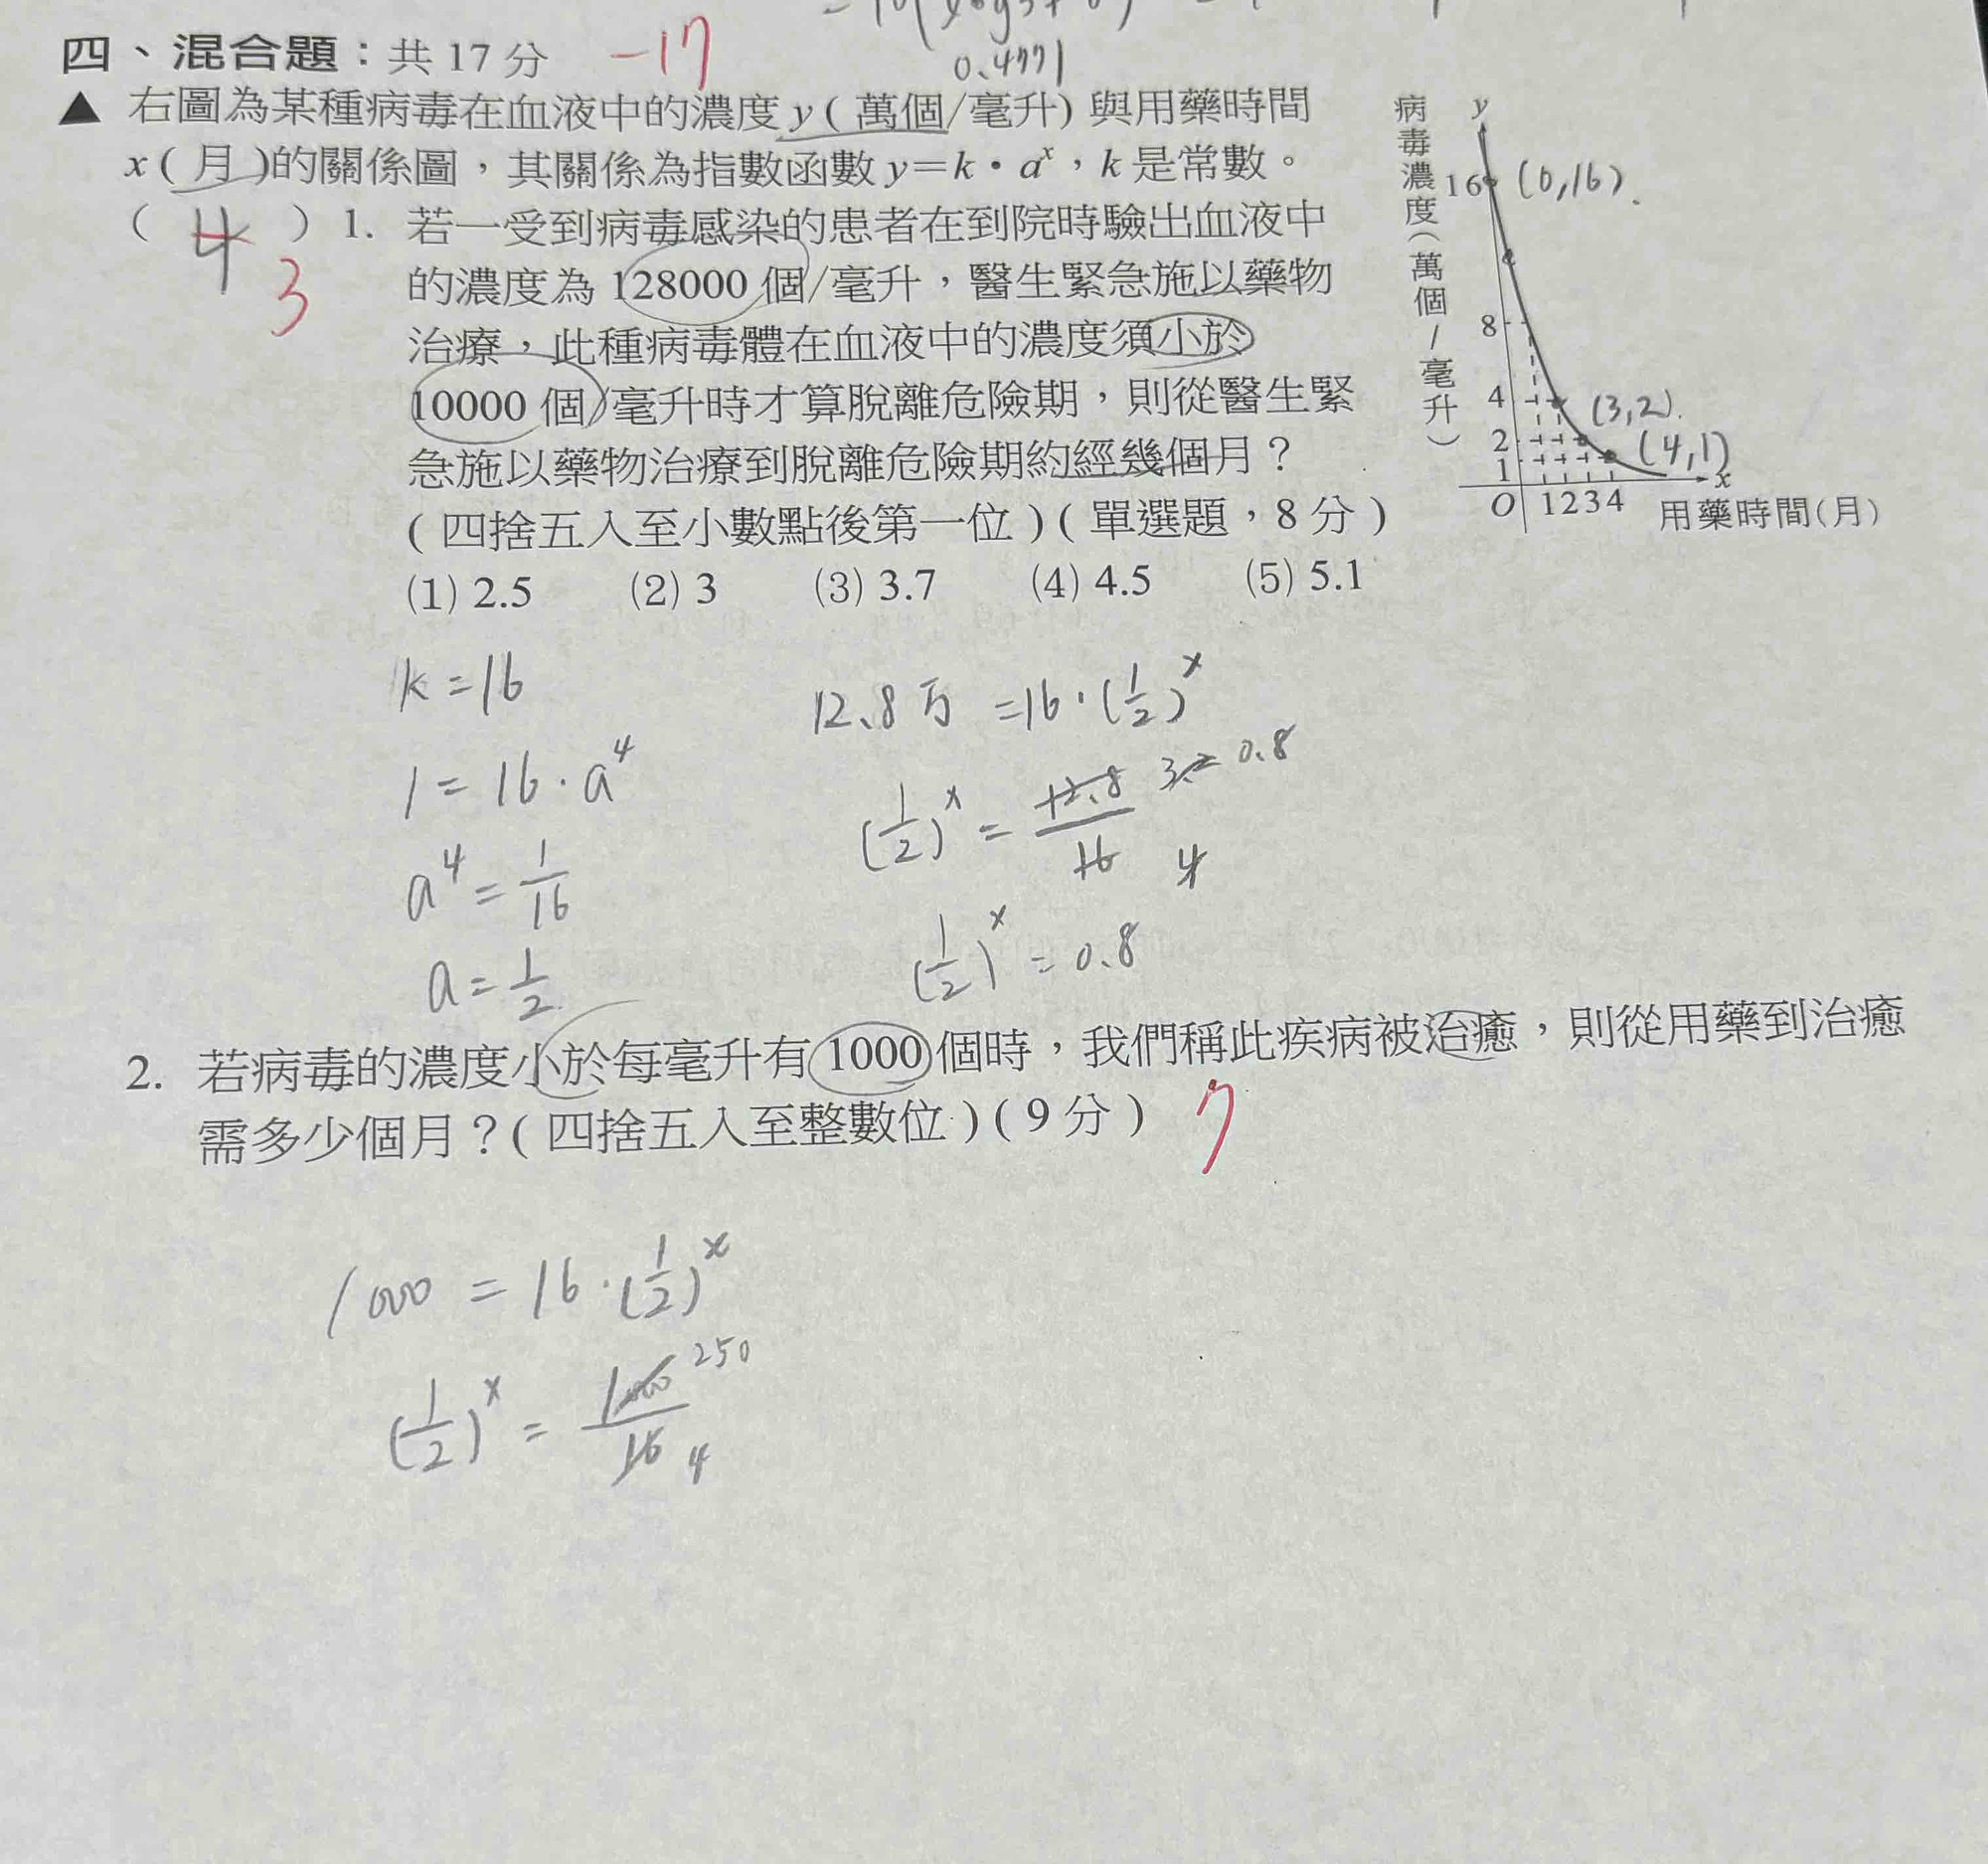 四、混合題：共 17 分 -17
0.4771
▲ 右圖為某種病毒在血液中的濃度 y ( 萬個/毫升) 與用藥時間
x ( 月 )的關係圖，其關係為指數函數 y=k·aˣ，k 是常數。
( 4 ) 1. 若一受到病毒感染的患者在到院時驗出血液中
3
的濃度為 128000 個/毫升，醫生緊急施以藥物
治療，此種病毒體在血液中的濃度須小於
10000 個/毫升時才算脫離危險期，則從醫生緊
急施以藥物治療到脫離危險期約經幾個月？
( 四捨五入至小數點後第一位 ) ( 單選題，8 分 )
(1) 2.5 (2) 3 (3) 3.7 (4) 4.5 (5) 5.1
病毒濃度(萬個/毫升)
y
16 (0,16).
8
4 (3,2).
2 (4,1)
1 x
O 1 2 3 4 用藥時間(月)
k=16
1=16·a⁴
a⁴=1/16
a=1/2
12.8万 =16·(1/2)ˣ
(1/2)ˣ = 12.8/16 3.2 0.8
4
(1/2)ˣ = 0.8
2. 若病毒的濃度小於每毫升有 1000 個時，我們稱此疾病被治癒，則從用藥到治癒
需多少個月？( 四捨五入至整數位 ) ( 9 分 ) 7
1000 = 16·(1/2)ˣ
(1/2)ˣ = 1000/16 250
4